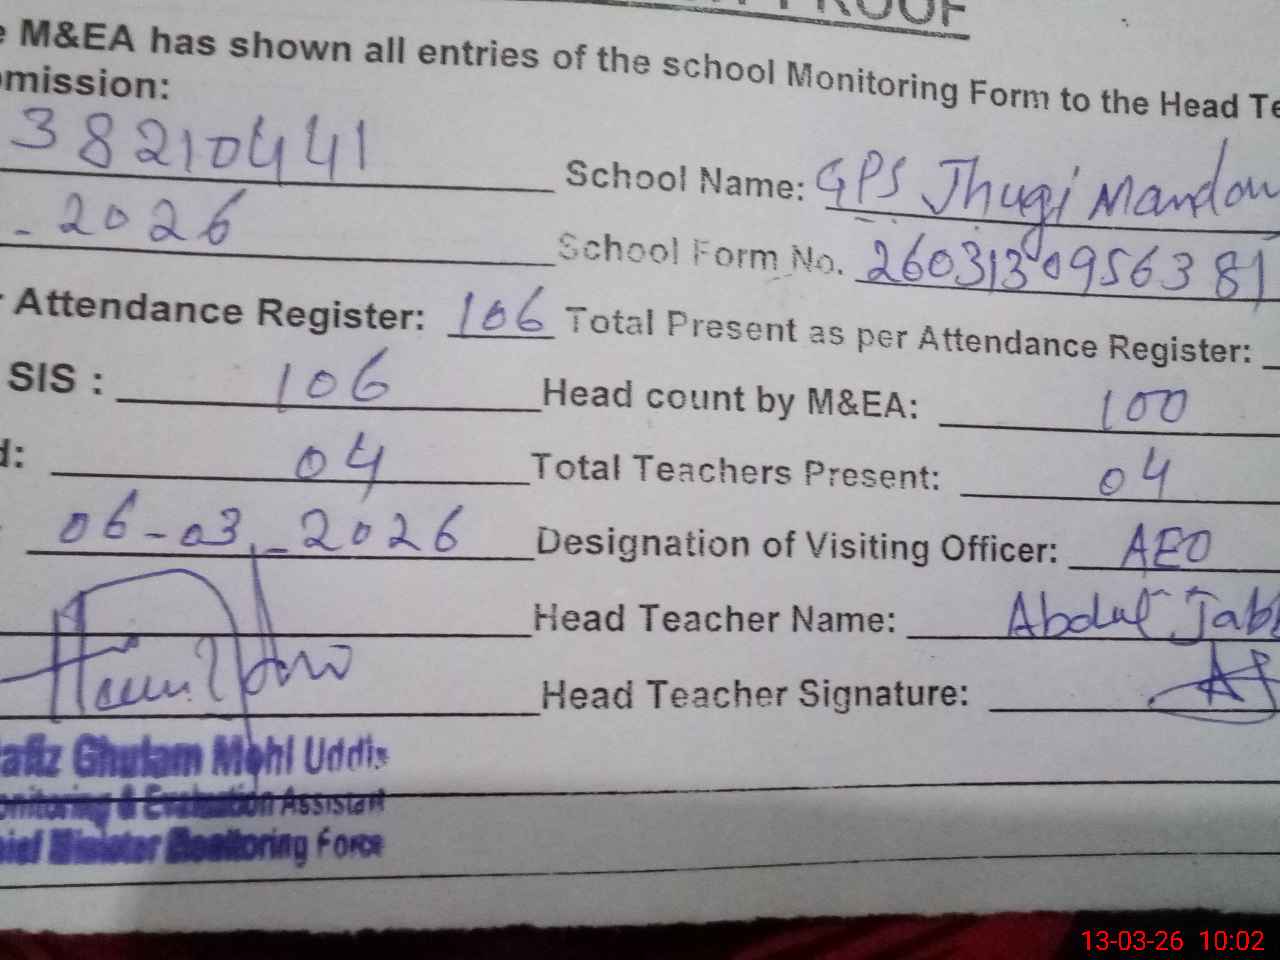 PROOF
e M&EA has shown all entries of the school Monitoring Form to the Head Te
mission:
38210441 School Name: GPS Jhugi Mandou
- 2026 School Form No. 2603130956381
r Attendance Register: 106 Total Present as per Attendance Register:
SIS : 106 Head count by M&EA: 100
d: 04 Total Teachers Present: 04
06-03-2026 Designation of Visiting Officer: AEO
Head Teacher Name: Abdul Jabb
Head Teacher Signature:
afiz Ghulam Mohi Uddin
onitoring & Evaluation Assistant
hief Minister Monitoring Force
13-03-26 10:02